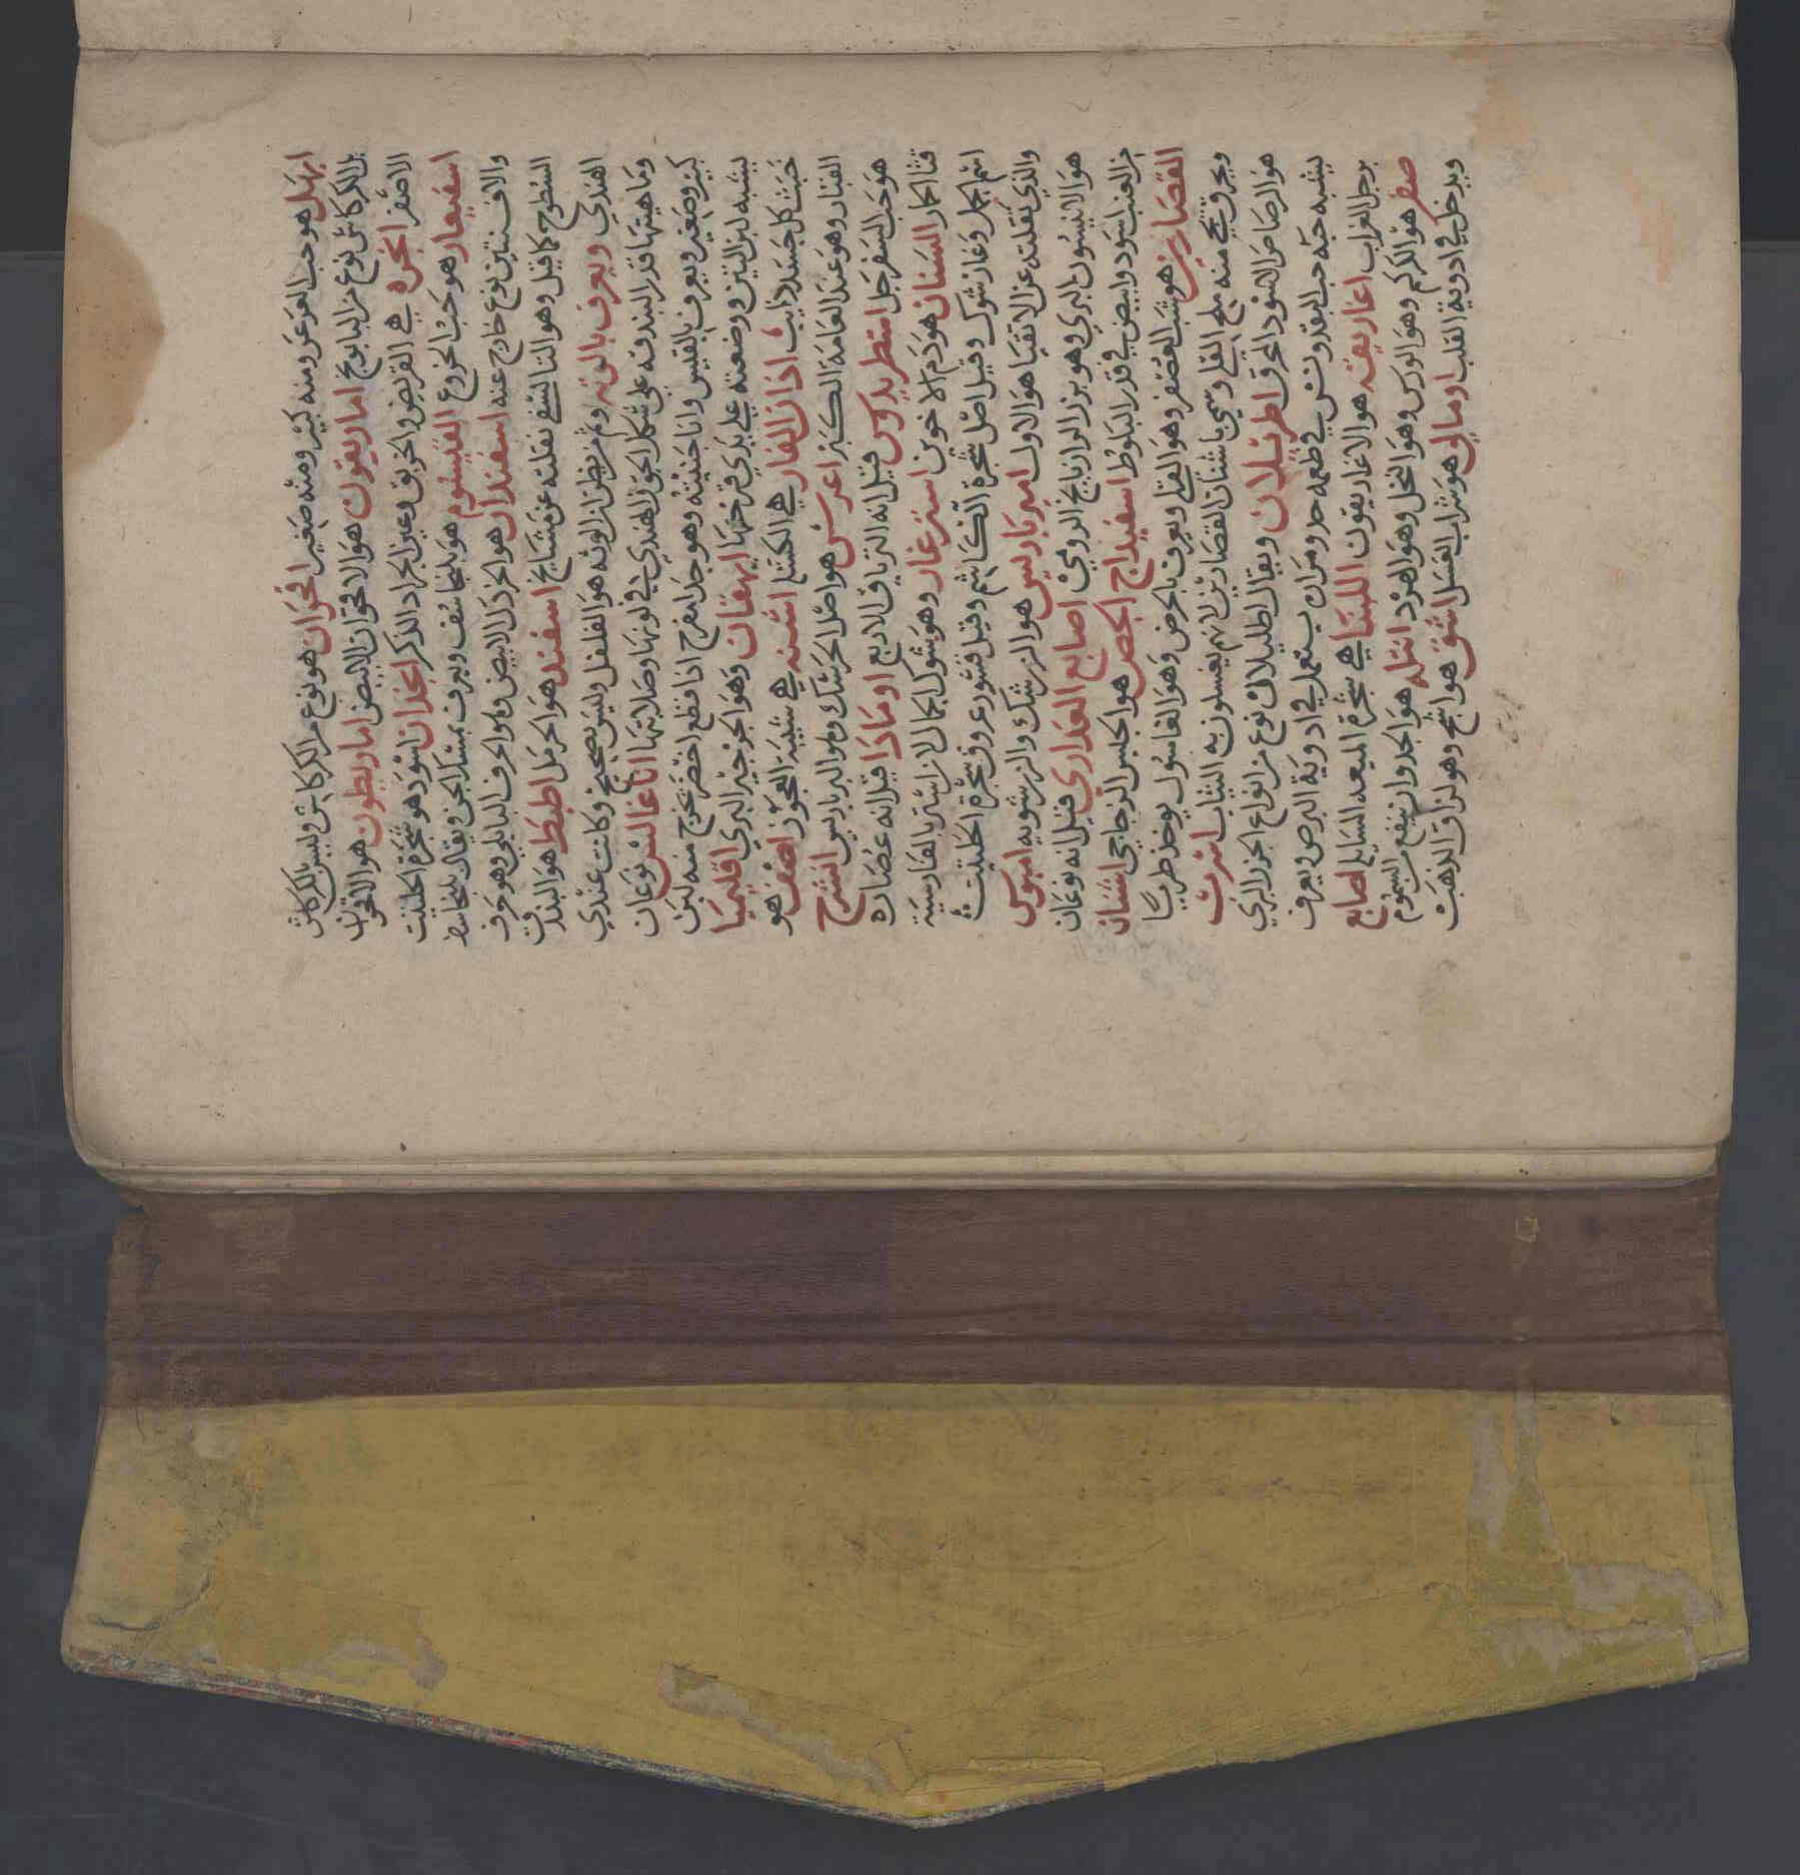 ابهل هو حب العرعر ومنه كبير ومنه صغير اقحوان هو نوع من الكركاش وليس بالكركاش
بل الكركاش نوع من البابونج اماريقون هو الاقحوان الابيض اماريطون هو الاقحوان
الاصفر انجره هي القريض والحريق وعين الجراد الذكر انجدان اسود هو شجرة الحلتيت
هو حب الخروع هو بلنجاسف ويعرف بمسك الجن ويقال بلنجاسف
والاف سنتين نوع خارج عنه اسفندان هو الخردل الابيض وهو الحرف البابلي وهو حرف
السطوح كما قيل وهو نقلته عن مشايخ اسفند هو الحرمل اطبط هو البندق
الهندي ويعرف بالرته وثم من يظن ان الرته هو الفلفل وليس بصحيح وكانت عندي
وماهيتها قدر البندقه على شكل الجوز الهندي في لونها وصلابتها اناغالس نوعان
كبير وصغير ويعرف وهو جدا مفرح اذا قطع اخضر يخرج منه لبن
يشبه لبن التين ووضعته على يدي قرحتها ايهقان وهو الجرجير البري اقليميا
خبث كل جسد ذايب اذان الفار هي اشنه هي شيبة العجوز اصف هو
القبار وهو عند العامة الكبر هو اصل الحرشك وهو البرباريس انشرح
هو حب السفرجل قيل انه الترياق الاربع اوماذا قيل انه عصاره
قثا الحمار السنان هو دم الاخوين استرغار وهو شوك الجمال لان استر بالفارسية
اسم الجمل وغار شوك وقيل اصل شجرة الكاشم وقيل قشور عروق شجرة الحلتيت
والذي نقلته عن الاتقيا هو الاول امبرباريس هو الزرشك والزرشويه امبوس
هو الانيسون البري وهو بزر الرازيانج الرومي اصابع العذاري قيل انه نوعان
من العنب اسود وابيض في قدر البلوط اسفيداج الجص هو الجبس الزجاجي اشنان
القصارين هو شب العصفر وهو القلي ويعرف بالحرض وهو الغاسول يوخذ طريا
ويحرق يجي منه ملح القلي وسمي باشنان القصارين لانهم يغسلون به الثياب اسرب
هو الرصاص الاسود المحرق اطريلان ويقال اطليلان نوع من انواع الجزر البري
يشبه حبه حب البقدونس في طعمه حدو مراره يستعمل في ادوية البرص ويعرف
برجل الغراب اغاريقه هو الاغاريقون اللبنا هي شجرة الميعه السايله اصابع
صفر هو الكركم وهو الورس وهو وهو الهرد انتله هو الجدوار ينفع من السموم
ويدخل في ادوية القلب اومالي هو شراب العسل اشق هو اشج وهو لزاق الذهب